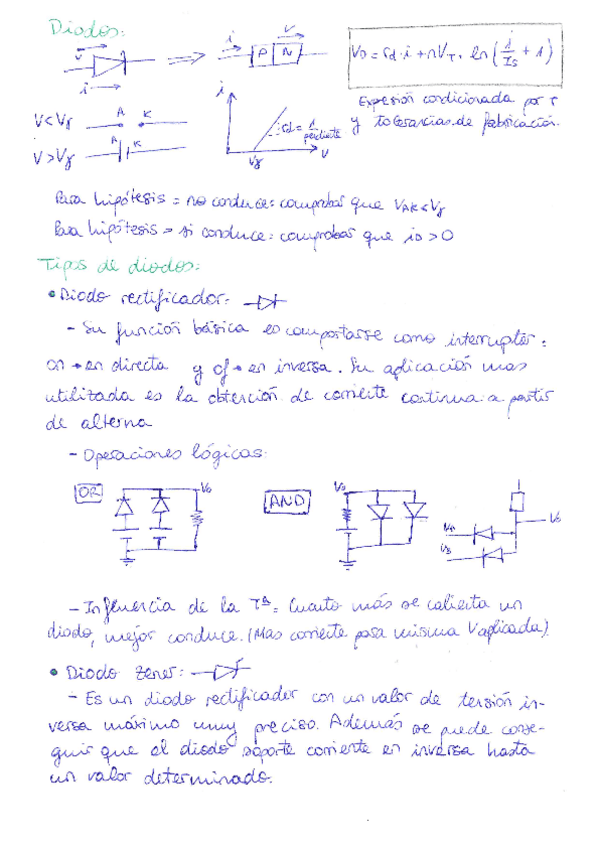 Diodos:
V
i
i
V
P N
V_D = r_d · i + nV_T · ln(i/I_S + 1)
Expresión condicionada por r
y tolerancias de fabricación.
V<Vγ A K
V>Vγ A K
i
rd = 1/pendiente
Vγ V
Para hipótesis = no conduce: comprobar que V_AK<Vγ
Para hipótesis = si conduce: comprobar que i_D>0
Tipos de diodos:
• Diodo rectificador:
- Su función básica es comportarse como interruptor:
on → en directa y off → en inversa. Su aplicación mas
utilizada es la obtención de corriente continua a partir
de alterna
- Operaciones lógicas:
OR Vo AND Vo
VA Vo
VB
- Influencia de la Tª: Cuanto más se calienta un
diodo, mejor conduce. (Mas corriente para misma V aplicada).
• Diodo zener:
- Es un diodo rectificador con un valor de tensión in-
versa máximo muy preciso. Además se puede conse-
guir que el diodo soporte corriente en inversa hasta
un valor determinado.